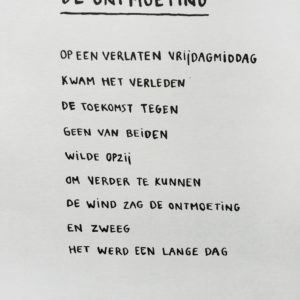 DE ONTMOETING
OP EEN VERLATEN VRIJDAGMIDDAG
KWAM HET VERLEDEN
DE TOEKOMST TEGEN
GEEN VAN BEIDEN
WILDE OPZIJ
OM VERDER TE KUNNEN
DE WIND ZAG DE ONTMOETING
EN ZWEEG
HET WERD EEN LANGE DAG